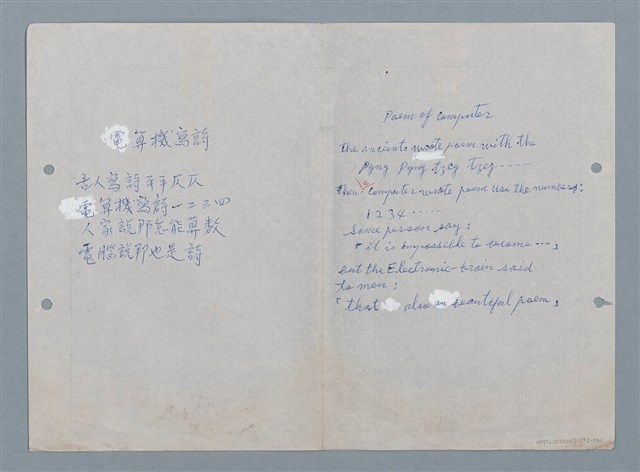 電算機寫詩
古人寫詩平平仄仄
電算機寫詩一二三四
人家說那怎能算数
電腦說那也是詩
Poem of computer
the ancients wrote poem with the
Pyng Pyng tzeg tzeg -----
then computer wrote poem use the numbers:
1 2 3 4 -----
Some person say:
「it is impossible to become ---」
but the Electronic-brain said
to men:
「that also an beautiful poem」